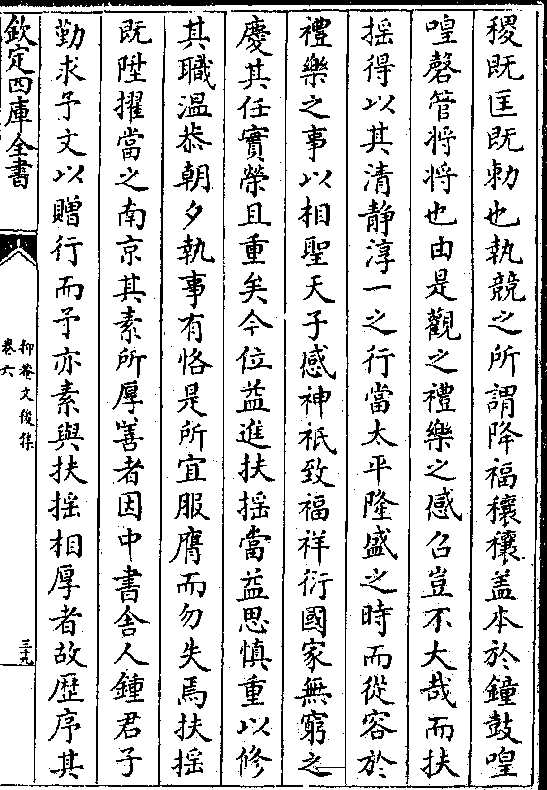 稷既匡既勅也執競之所謂降福穰穰蓋本於鐘鼓喤
喤磬管將將也由是觀之禮樂之感召豈不大哉而扶
揺得以其清静淳一之行當太平隆盛之時而從容於
禮樂之事以相聖天子感神祇致福祥衍國家無窮之
慶其任實榮且重矣今位益進扶揺當益思慎重以修
其職溫恭朝夕執事有恪是所宜服膺而勿失焉扶揺
既陞擢當之南京其素所厚善者因中書舍人鍾君子
勤求予文以贈行而予亦素與扶揺相厚者故歴序其
欽定四庫全書
抑菴文後集
卷六
三十九